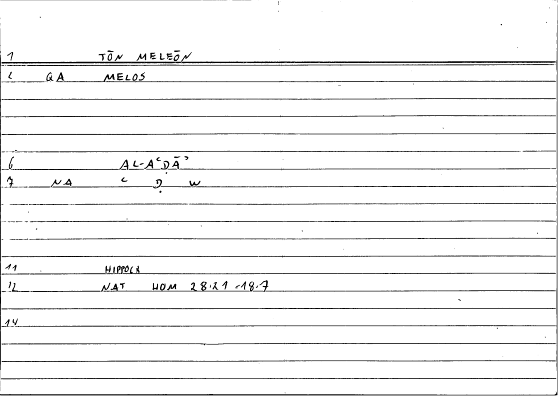 1 TŌN MELEŌN
2 GA MELOS
6 AL-AʿḌĀʾ
7 NA ʿ Ḍ W
11 HIPPOCR
12 NAT HOM 28.21 -18.7
14